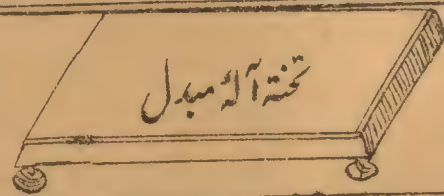 تختۂ آلۂ مبادل